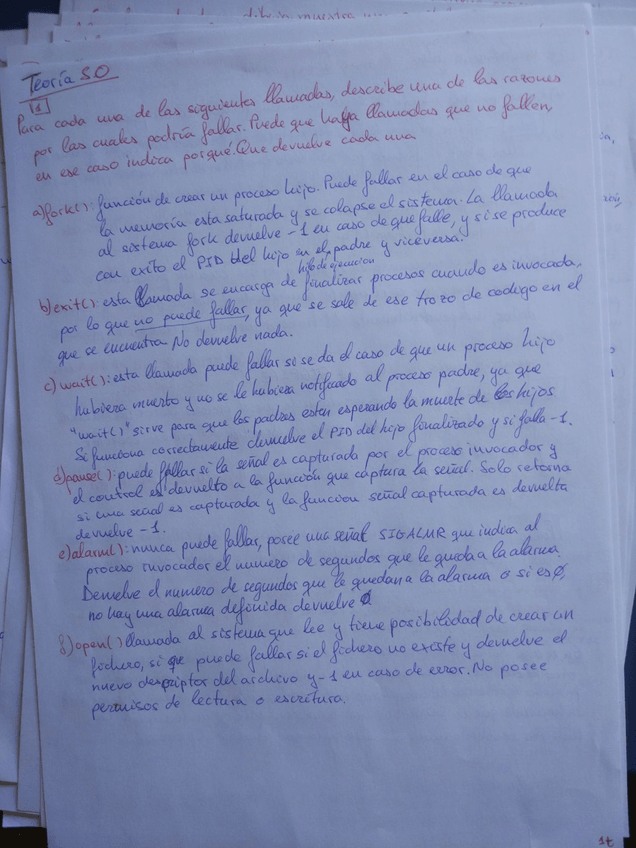 Teoría SO
1
Para cada una de las siguientes llamadas, describe una de las razones
por las cuales podría fallar. Puede que haya llamadas que no fallen,
en ese caso indica porqué. Que devuelve cada una
a) fork(): función de crear un proceso hijo. Puede fallar en el caso de que
la memoria esta saturada y se colapse el sistema. La llamada
al sistema fork devuelve -1 en caso de que falle, y si se produce
con exito el PID del hijo en el padre y viceversa.
hilo de ejecucion
b) exit(): esta llamada se encarga de finalizar procesos cuando es invocada,
por lo que no puede fallar, ya que se sale de ese trozo de codigo en el
que se encuentra. No devuelve nada.
c) wait(): esta llamada puede fallar si se da el caso de que un proceso hijo
hubiera muerto y no se le hubiera notificado al proceso padre, ya que
"wait()" sirve para que los padres esten esperando la muerte de los hijos
Si funciona correctamente devuelve el PID del hijo finalizado y si falla -1.
d) pause(): puede fallar si la señal es capturada por el proceso invocador y
el control es devuelto a la función que captura la señal. Solo retorna
si una señal es capturada y la funcion señal capturada es devuelta
devuelve -1.
e) alarm(): nunca puede fallar, posee una señal SIGALMR que indica al
proceso invocador el numero de segundos que le queda a la alarma.
Devuelve el numero de segundos que le quedan a la alarma o si es 0,
no hay una alarma definida devuelve 0
f) open() llamada al sistema que lee y tiene posibilidad de crear un
fichero, si que puede fallar si el fichero no existe y devuelve el
nuevo descriptor del archivo y -1 en caso de error. No posee
permisos de lectura o escritura.